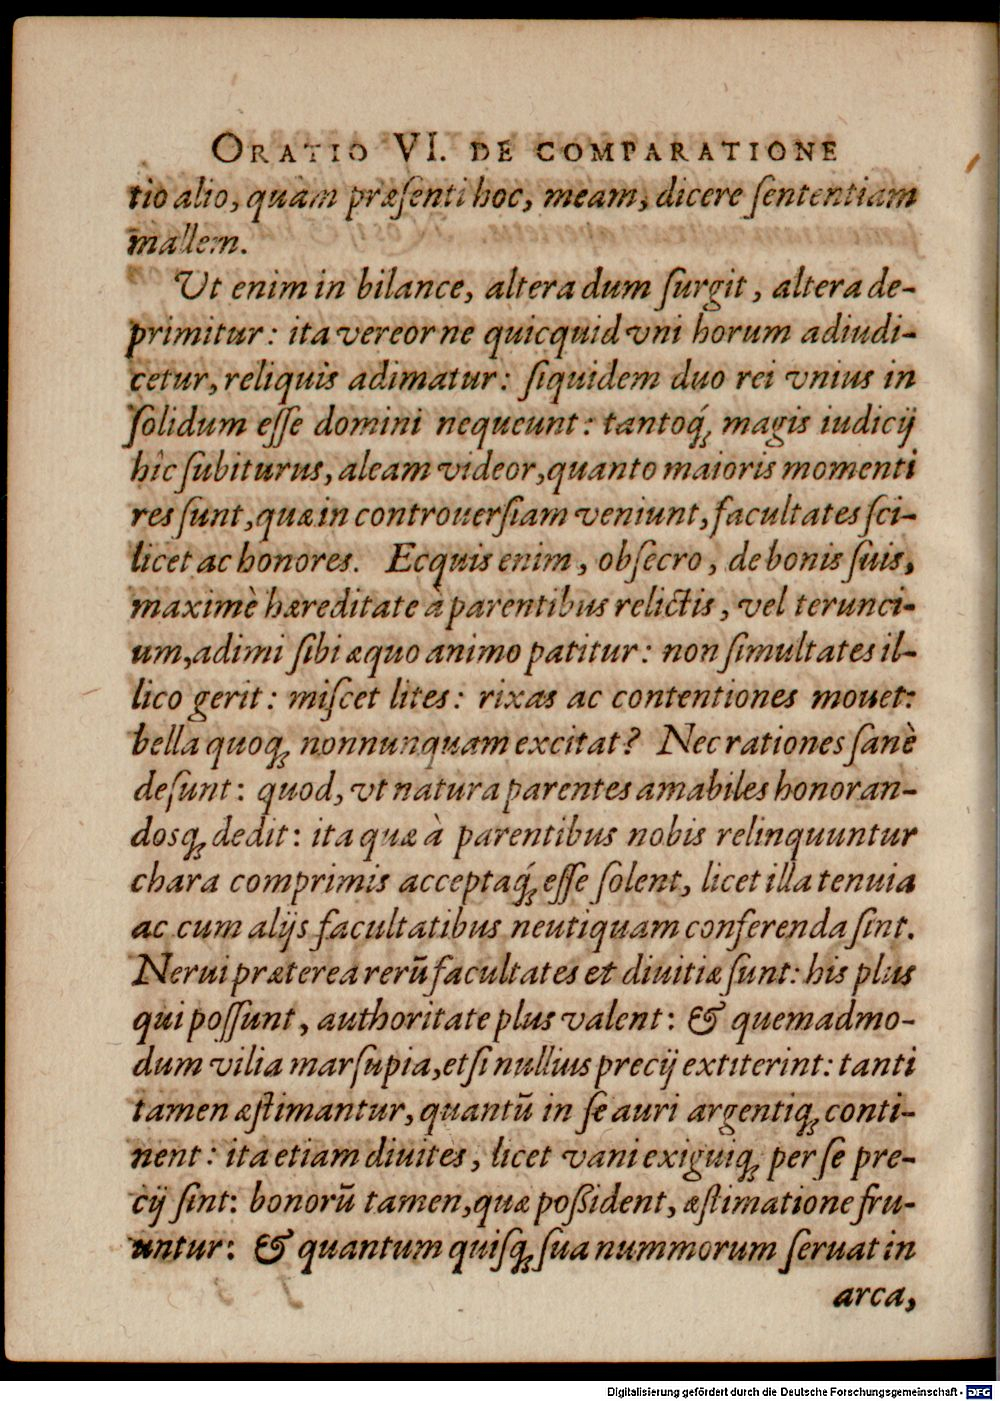 ORATIO VI. DE COMPARATIONE
tio alio, quàm præſenti hoc, meam, dicere ſententiam
mallem.
Ut enim in bilance, altera dum ſurgit, altera de-
primitur: ita vereor ne quicquid vni horum adiudi-
cetur, reliquis adimatur: ſiquidem duo rei vnius in
ſolidum eſſe domini nequeunt: tantoq́ꝫ magis iudicij
hîc ſubiturus, aleam videor, quanto maioris momenti
res ſunt, quæ in controuerſiam veniunt, facultates ſci-
licet ac honores. Ecquis enim, obſecro, de bonis ſuis,
maximè hæreditate à parentibus relictis, vel terunci-
um, adimi ſibi æquo animo patitur: non ſimultates il-
lico gerit: miſcet lites: rixas ac contentiones mouet:
bella quoqꝫ nonnunquam excitat? Nec rationes ſanè
deſunt: quod, vt natura parentes amabiles honoran-
dosqꝫ dedit: ita quæ à parentibus nobis relinquuntur
chara comprimis acceptaq́ꝫ eſſe ſolent, licet illa tenuia
ac cum alijs facultatibus neutiquam conferenda ſint.
Nerui præterea rerū facultates et diuitiæ ſunt: his plus
qui poſſunt, authoritate plus valent: & quemadmo-
dum vilia marſupia, etſi nullius precij extiterint: tanti
tamen æſtimantur, quantū in ſe auri argentiqꝫ conti-
nent: ita etiam diuites, licet vani exiguiqꝫ per ſe pre-
cij ſint: bonorū tamen, quæ poßident, æſtimatione fru-
untur: & quantum quiſqꝫ ſua nummorum ſeruat in
arca,
Digitalisierung gefördert durch die Deutsche Forschungsgemeinschaft - DFG